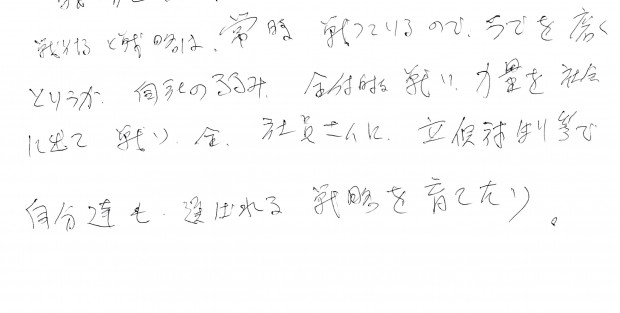 戦略は、常時 戦っているので、うでを磨く
というか、自社の弱み、全体的な戦い、力量を社会
に出て 戦い、全、社員さんに、立
自分達も、選ばれる 戦略を育てたい。